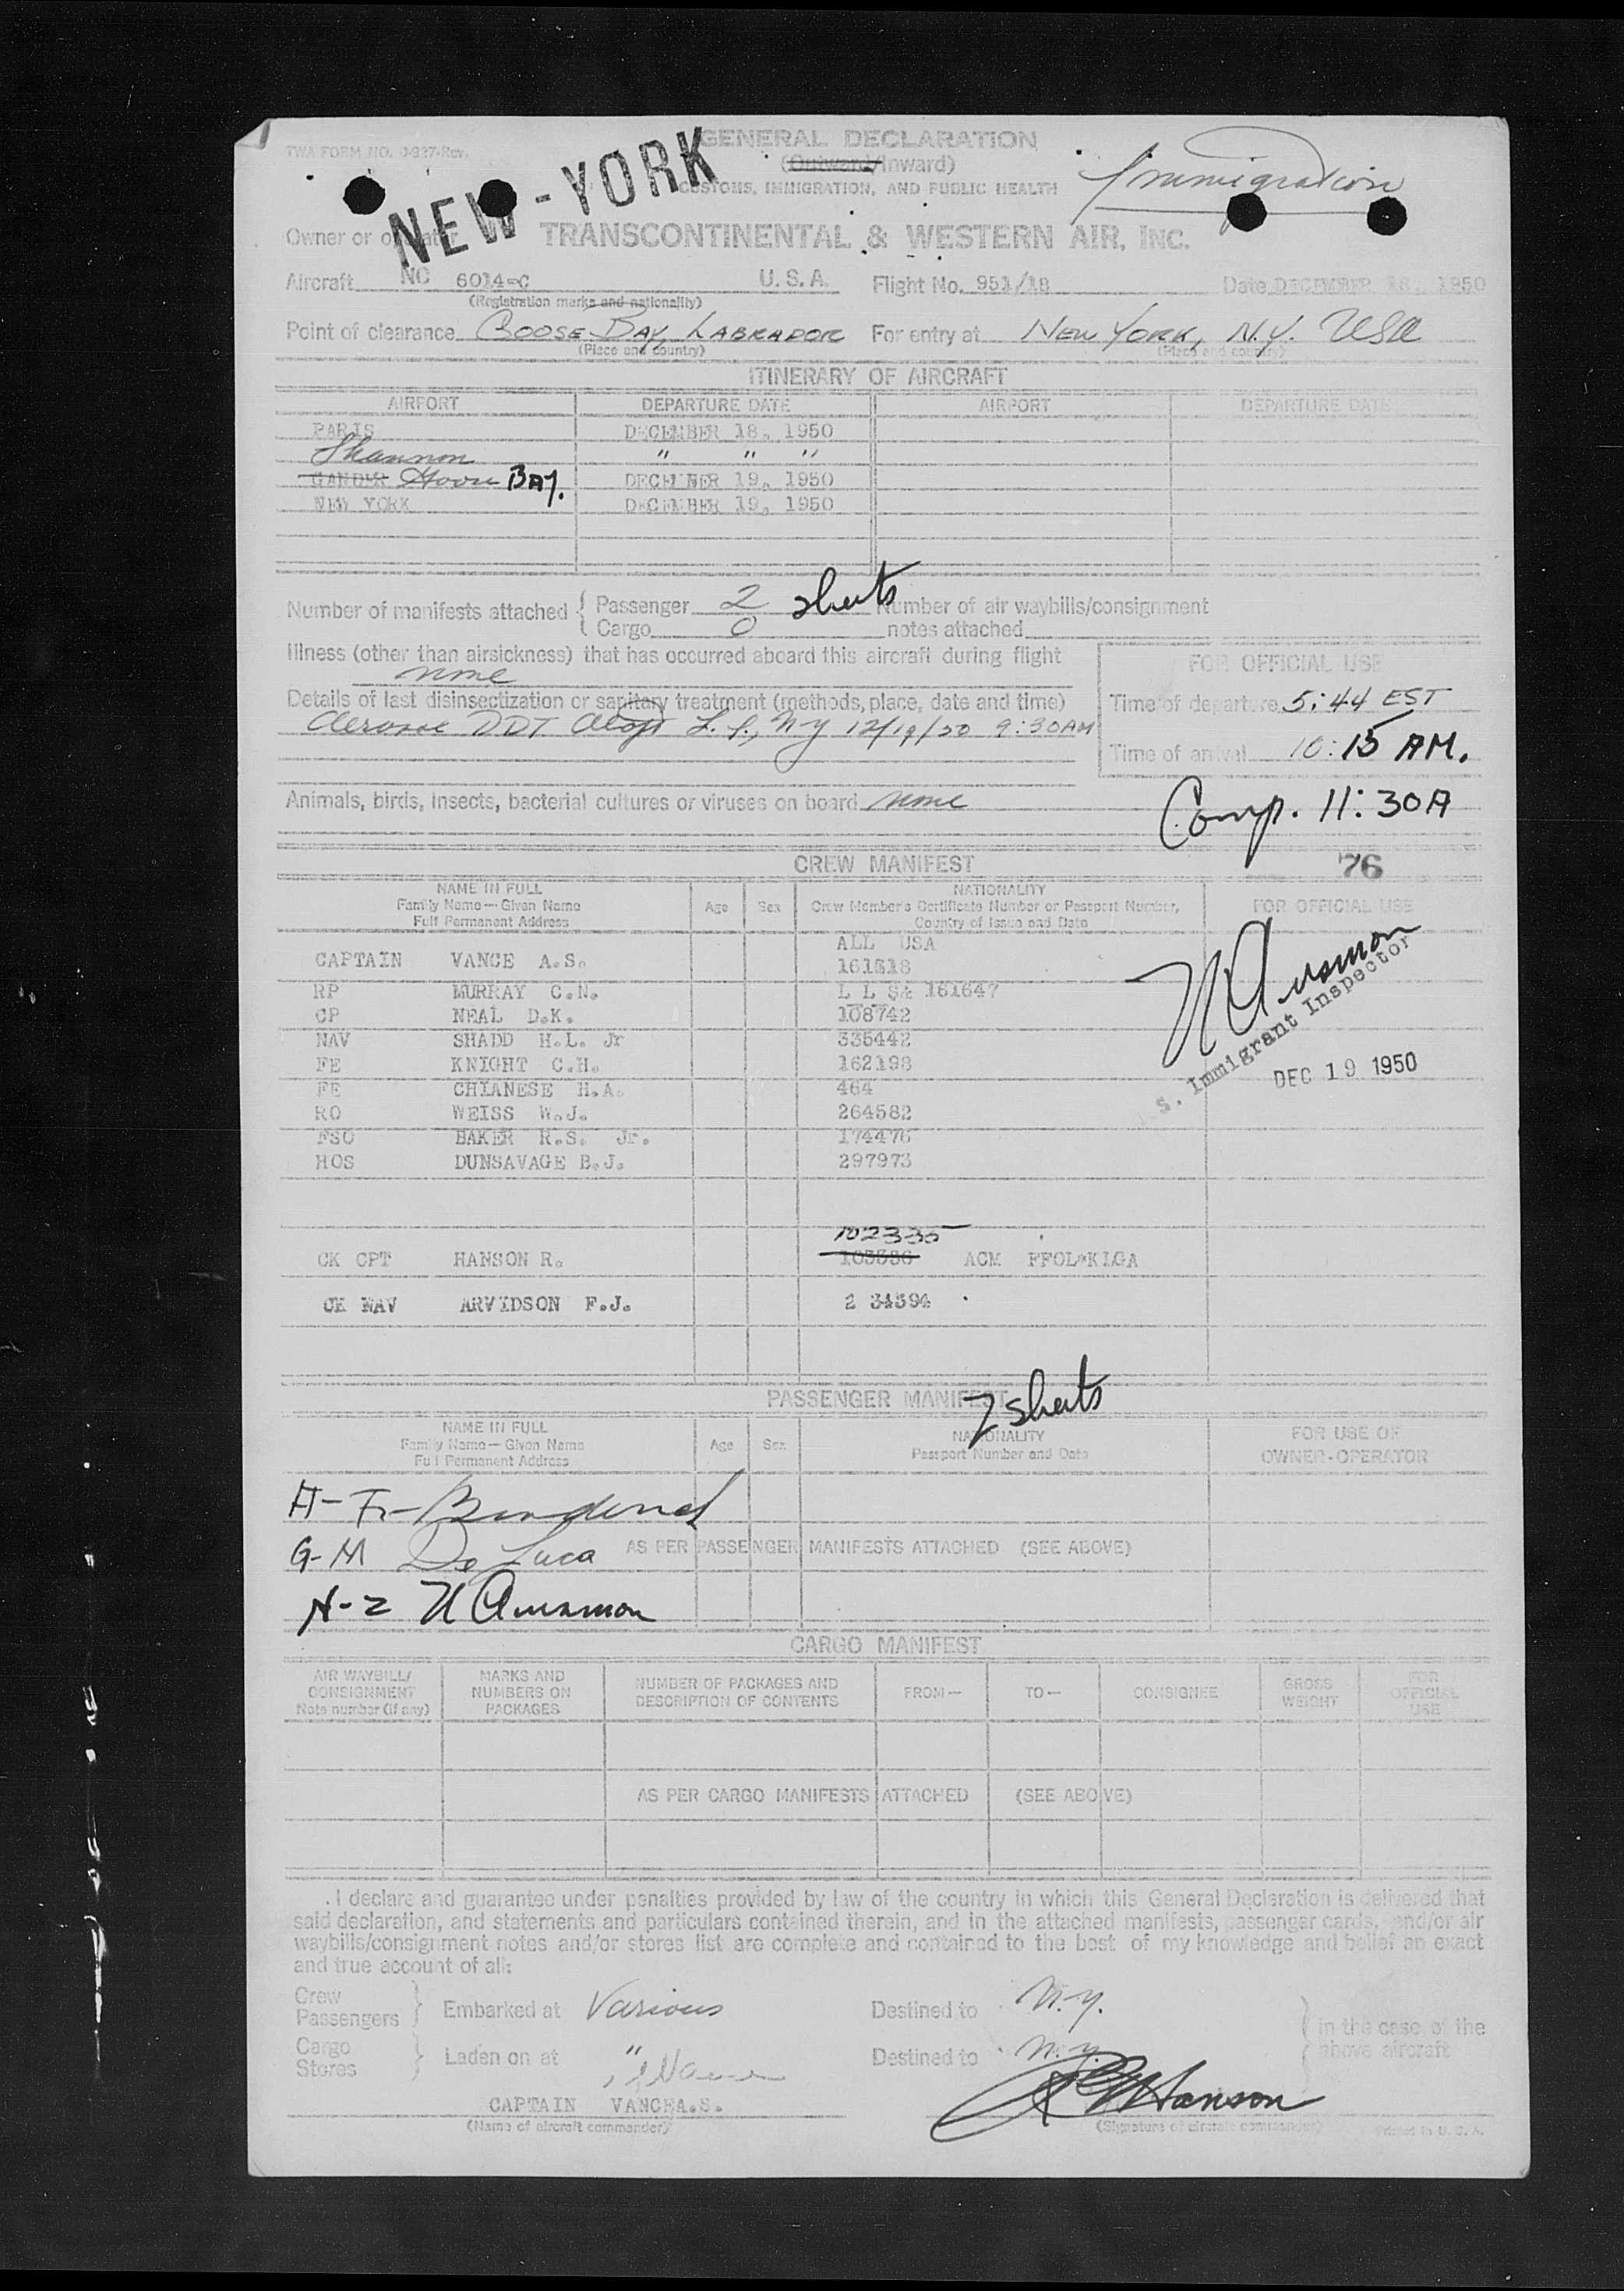 GENERAL DECLARATION
TWA FORM NO. 0-927-Rev.
(Outward/Inward)
CUSTOMS, IMMIGRATION, AND PUBLIC HEALTH
Immigration
NEW-YORK
Owner or operator TRANSCONTINENTAL & WESTERN AIR, INC.
Aircraft NC 6014-C U.S.A. Flight No. 951/18 Date DECEMBER 18, 1950
(Registration marks and nationality)
Point of clearance GOOSE BAY, LABRADOR For entry at NEW YORK, N.Y. USA
(Place and country) (Place and country)
ITINERARY OF AIRCRAFT
AIRPORT DEPARTURE DATE AIRPORT DEPARTURE DATE
PARIS DECEMBER 18, 1950
Shannon " " "
GANDER Goose BAY. DECEMBER 19, 1950
NEW YORK DECEMBER 19, 1950
Number of manifests attached { Passenger 2 sheets Number of air waybills/consignment
Cargo 0 notes attached
Illness (other than airsickness) that has occurred aboard this aircraft during flight
none
FOR OFFICIAL USE
Details of last disinsectization or sanitary treatment (methods, place, date and time)
Time of departure 5:44 EST
DDT L.I., NY 12/19/50 9:30AM
Time of arrival 10:15 AM.
Animals, birds, insects, bacterial cultures or viruses on board none
Comp. 11:30A
CREW MANIFEST 76
NAME IN FULL NATIONALITY
Family Name—Given Name Age Sex Crew Member's Certificate Number or Passport Number, FOR OFFICIAL USE
Full Permanent Address Country of Issue and Date
ALL USA
CAPTAIN VANCE A.S. 161318
RP MURRAY C.N. 161647
CP NEAL D.K. 108742
NAV SHADD H.L. Jr 335442
FE KNIGHT C.H. 162198
FE CHIANESE H.A. 464
RO WEISS W.J. 264582
FSO BAKER R.S. Jr. 174476
HOS DUNSAVAGE B.J. 297973
U.S. Immigrant Inspector
DEC 19 1950
102335
CK CPT HANSON R. 103336 ACM
CK NAV ARVIDSON F.J. 2 34594
PASSENGER MANIFEST
2 sheets
NAME IN FULL NATIONALITY FOR USE OF
Family Name—Given Name Age Sex Passport Number and Date OWNER-OPERATOR
Full Permanent Address
A-F-
G-M De Luca AS PER PASSENGER MANIFESTS ATTACHED (SEE ABOVE)
N-Z
CARGO MANIFEST
AIR WAYBILL/ MARKS AND NUMBER OF PACKAGES AND FROM— TO— CONSIGNEE GROSS FOR
CONSIGNMENT NUMBERS ON DESCRIPTION OF CONTENTS WEIGHT OFFICIAL
Note number (if any) PACKAGES USE
AS PER CARGO MANIFESTS ATTACHED (SEE ABOVE)
I declare and guarantee under penalties provided by law of the country in which this General Declaration is delivered that
said declaration, and statements and particulars contained therein, and in the attached manifests, passenger cards, and/or air
waybills/consignment notes and/or stores list are complete and contained to the best of my knowledge and belief an exact
and true account of all:
Crew
Passengers } Embarked at Various Destined to N.Y.
in the case of the
Cargo
Stores } Laden on at " Destined to N.Y. above aircraft
CAPTAIN VANCEA.S. Hanson
(Name of aircraft commander) (Signature of aircraft commander) Printed in U.S.A.